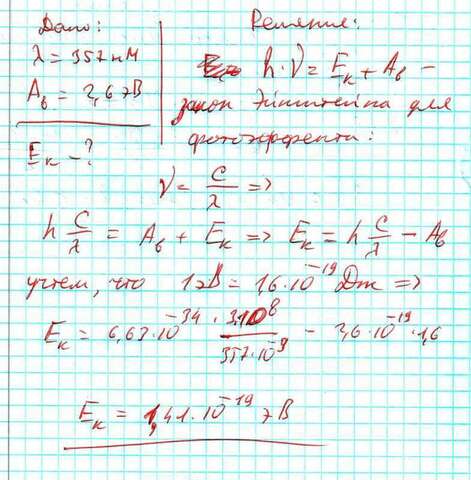 Дано:
λ = 357 нм
Aв = 2,6 эВ
Eк - ?
Решение:
h·ν = Eк + Aв –
закон Эйнштейна для
фотоэффекта:
ν = c/λ =>
h c/λ = Aв + Eк => Eк = h c/λ – Aв
учтем, что 1эВ = 1,6·10⁻¹⁹ Дж =>
Eк = 6,63·10⁻³⁴ · 3·10⁸/357·10⁻⁹ – 2,6·10⁻¹⁹·1,6
Eк = 1,41·10⁻¹⁹ эВ